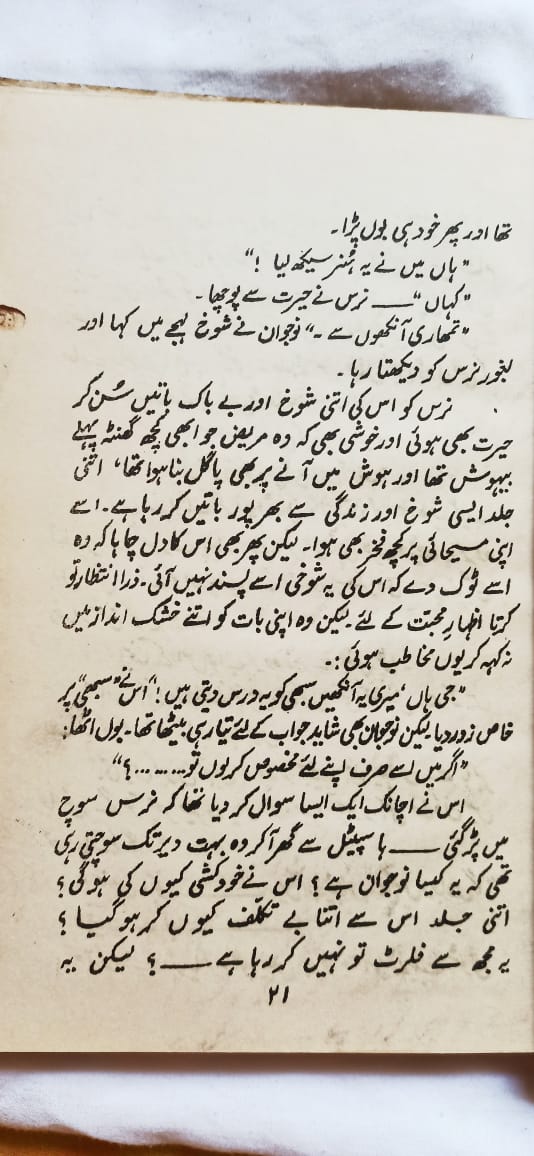 تھا اور پھر خود ہی بول پڑا۔
”ہاں میں نے یہ ہُنر سیکھ لیا !“
”کہاں“ —— نرس نے حیرت سے پوچھا۔
”تمھاری آنکھوں سے ۔“ نوجوان نے شوخ لہجے میں کہا اور
بغور نرس کو دیکھتا رہا۔
نرس کو اس کی اتنی شوخ اور بے باک باتیں سُن کر
حیرت بھی ہوئی اور خوشی بھی کہ وہ مریض جو ابھی کچھ گھنٹہ پہلے
بیہوش تھا اور ہوش میں آنے پر بھی پاگل بنا ہوا تھا، اتنی
جلد ایسی شوخ اور زندگی سے بھرپور باتیں کر رہا ہے۔ اسے
اپنی مسیحائی پر کچھ فخر بھی ہوا۔ لیکن پھر بھی اس کا دل چاہا کہ وہ
اسے ٹوک دے کہ اس کی یہ شوخی اسے پسند نہیں آئی۔ ذرا انتظار تو
کرتا اظہارِ محبت کے لئے۔ لیکن وہ اپنی بات کو اتنے خشک انداز میں
نہ کہہ کر یوں مخاطب ہوئی :۔
”جی ہاں، میری یہ آنکھیں سبھی کو یہ درس دیتی ہیں !“ اس نے ”سبھی“ پر
خاص زور دیا لیکن نوجوان بھی شاید جواب کے لئے تیار ہی بیٹھا تھا۔ بول اٹھا:
”اگر میں اسے صرف اپنے لئے مخصوص کر لوں تو.........؟“
اس نے اچانک ایک ایسا سوال کر دیا تھا کہ نرس سوچ
میں پڑ گئی —— ہاسپٹل سے گھر آ کر وہ بہت دیر تک سوچتی رہی
تھی کہ یہ کیسا نوجوان ہے ؟ اس نے خودکشی کیوں کی ہوگی ؟
اتنی جلد اس سے اتنا بے تکلّف کیوں کر ہو گیا ؟
یہ مجھ سے فلرٹ تو نہیں کر رہا ہے —— ؟ لیکن یہ
۲۱